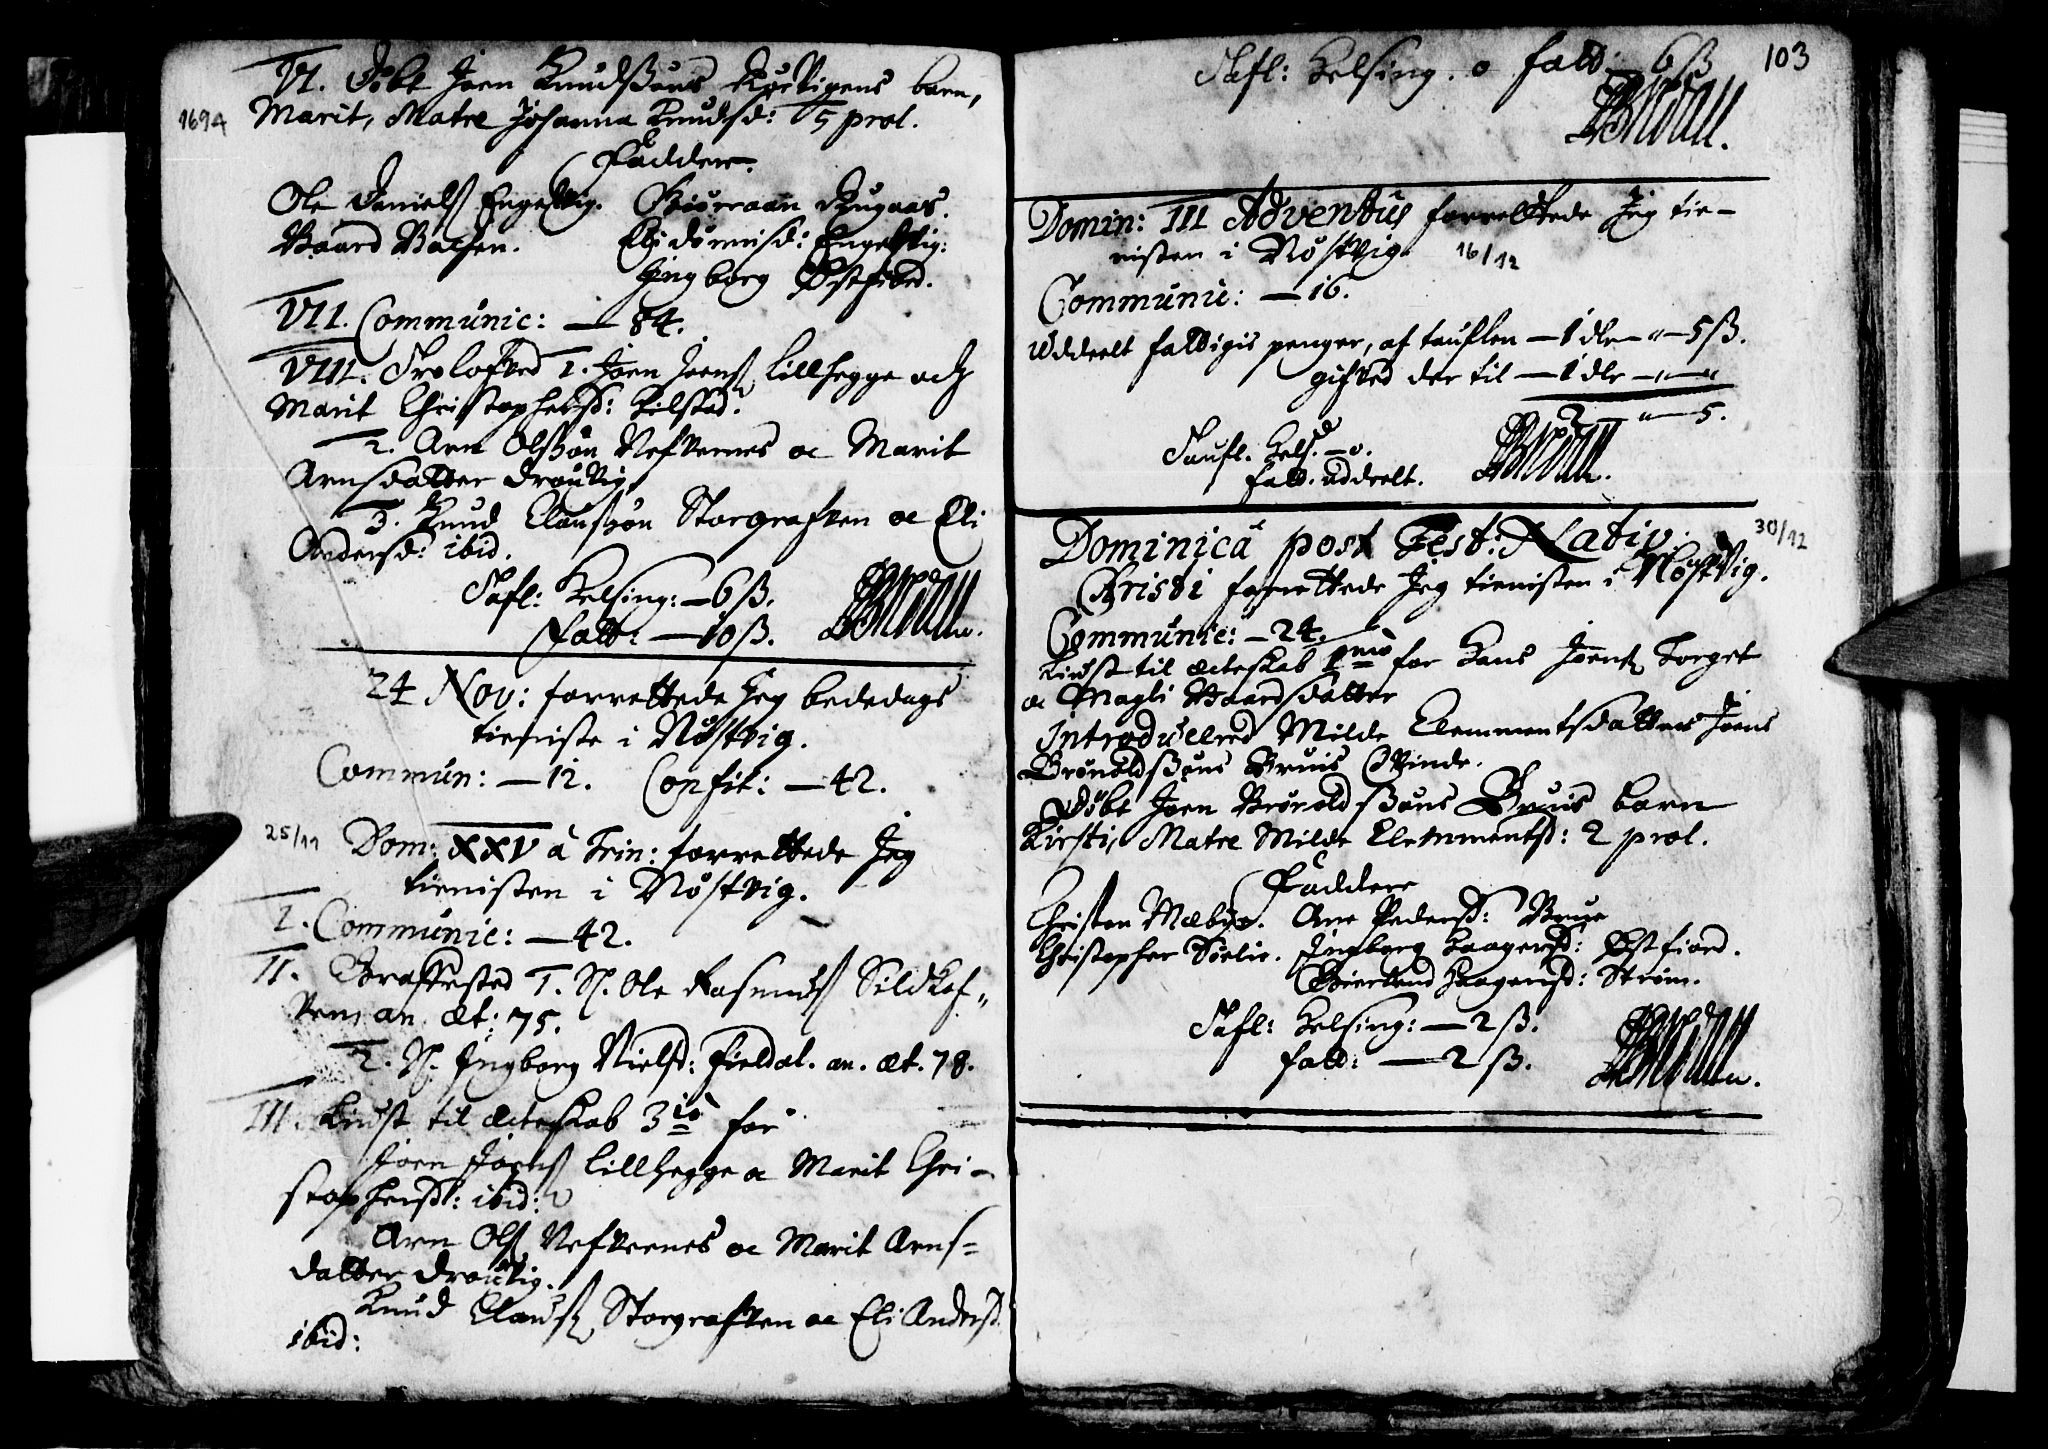 1694
VI. Døbt Joen Knudssøns barn,
Marit, Matre Johanna Knudsd: 5 prol.
Faddere.
Ole Daniels Engesvig. Rugaas.
Baard Bachen. Engesvig:
Ingborg Østfiord.
VII. Communic: — 84.
VIII. Troloffved 1. Joen Joens Lillhegge och
Marit Christophersd: Kilstad.
2. Arn Olssøn Neffvernes oc Marit
Arnsdatter Drauvig.
3. Knud Claussøn Storgraffven oc Eli
Andersd: ibid.
Tafl: Helsing: — 6 ß.
Fatt: — 10 ß.
24 Nov: forrettede Jeg bededags
tieniste i Nøstvig.
Commun: — 12. Confit: — 42.
25/11 Dom: XXV à Trin: forrettede Jeg
tienisten i Nøstvig.
I. Communic: — 42.
II. 1. S. Ole Rasmus Sildhaf-
ven an. æt: 75.
2. S. Ingborg Nielsd: Fieldal. an. æt. 78.
III. Liust til ecteskab 3io for
Joen Joens Lillhegge oc Marit Chri-
stophersd: ibid:
Arn Ols Neffvernes oc Marit Arns-
datter Drauvig.
Knud Claus Storgraffven oc Eli Andersd
ibid:
103
Tafl: Helsing. 0 fatt: 6 ß
Domin: III Adventus forrettede Jeg tie-
nisten i Nøstvig. 16/12
Communic: — 16.
Uddeelt fattigis penger, af tauflen — 1 dlr — " — 5 ß.
gifved der til — 1 dlr — " — "
2 " — 5.
Taufl. Hels. — 0.
fatt. uddeelt.
Dominica post Fest: Nativ: 30/12
Christi forrettede Jeg tienisten i Nøstvig.
Communic: — 24.
Liust til ecteskab pmo for Hans Joens Torget
oc Magli Baardsdatter
Introducered Milde Clemmentsdatter Joens
Bruis Qvinde.
Døbt Joen Bruis barn
Kirsti, Matre Milde Clemmentsd: 2 prol.
Faddere
Christen Mæbye. Ane Pedersd: Brue
Christopher Sørlie. Ingborg Haagensd: Østfiord.
Haagensd: Strøm.
Tafl: Helsing: — 2 ß.
fatt: — 2 ß.